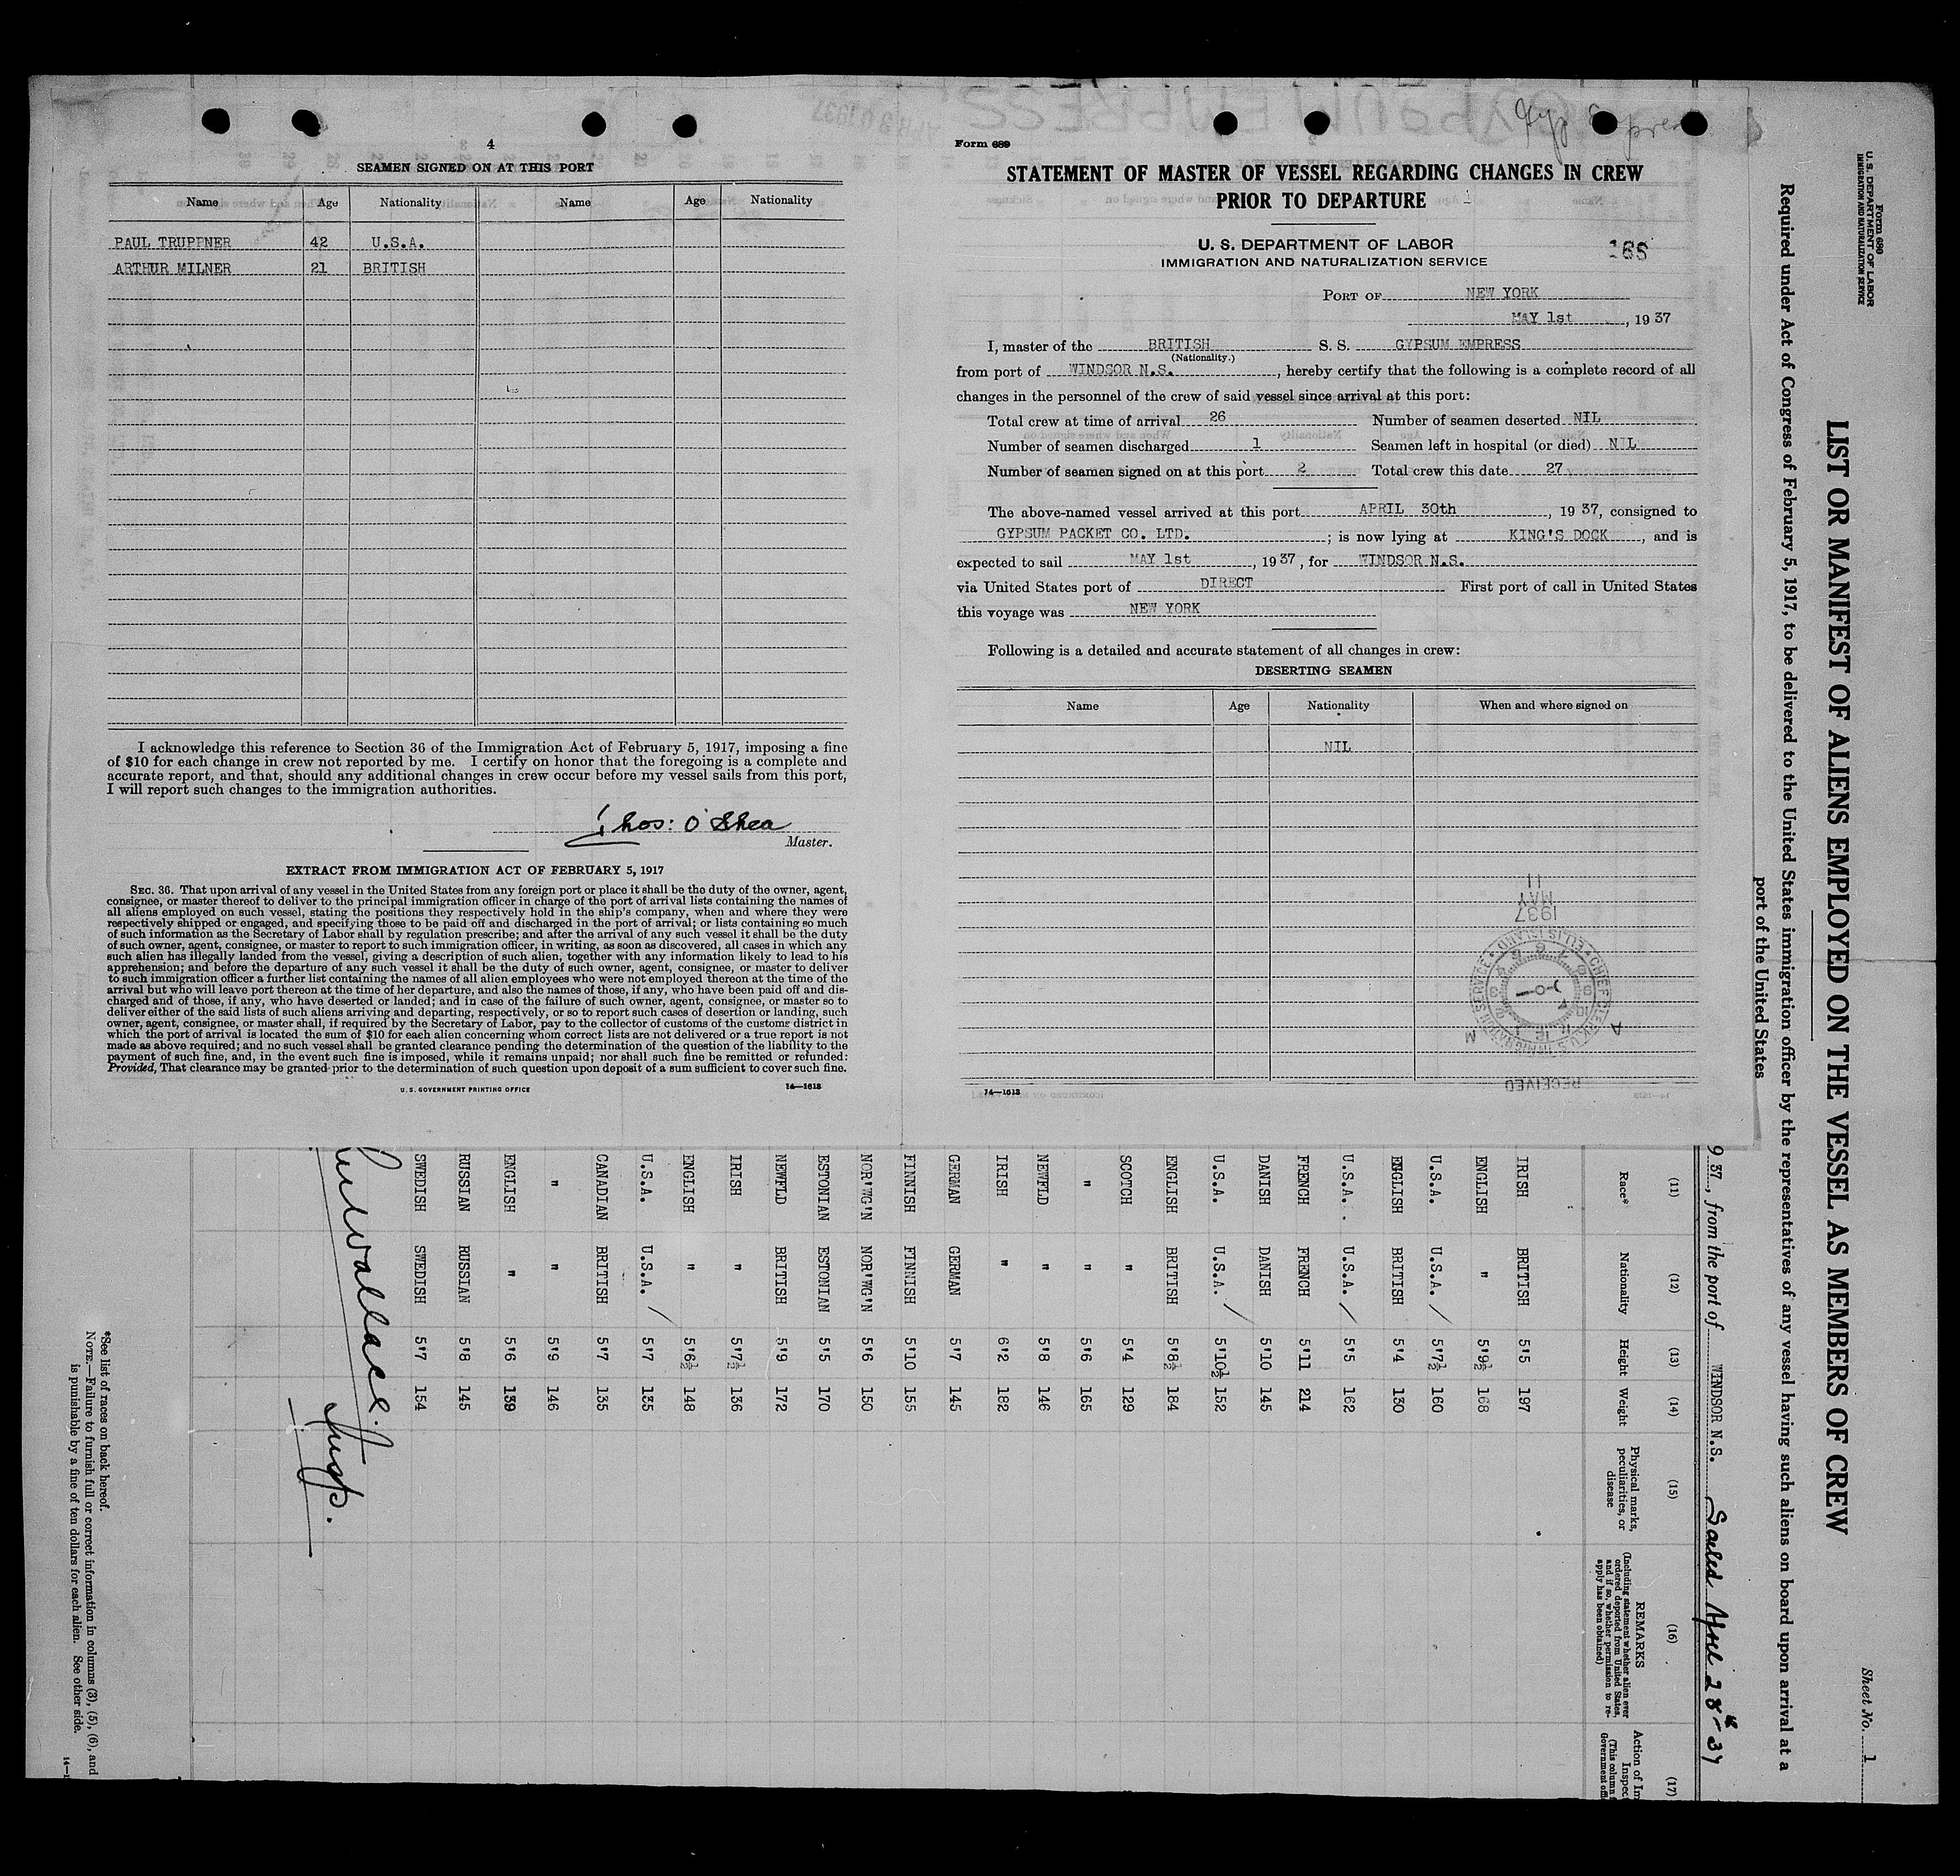 4
SEAMEN SIGNED ON AT THIS PORT
Name Age Nationality Name Age Nationality
PAUL TRUPPNER 42 U.S.A.
ARTHUR MILNER 21 BRITISH
I acknowledge this reference to Section 36 of the Immigration Act of February 5, 1917, imposing a fine
of $10 for each change in crew not reported by me. I certify on honor that the foregoing is a complete and
accurate report, and that, should any additional changes in crew occur before my vessel sails from this port,
I will report such changes to the immigration authorities.
Thos: O'Shea
Master.
EXTRACT FROM IMMIGRATION ACT OF FEBRUARY 5, 1917
SEC. 36. That upon arrival of any vessel in the United States from any foreign port or place it shall be the duty of the owner, agent,
consignee, or master thereof to deliver to the principal immigration officer in charge of the port of arrival lists containing the names of
all aliens employed on such vessel, stating the positions they respectively hold in the ship's company, when and where they were
respectively shipped or engaged, and specifying those to be paid off and discharged in the port of arrival; or lists containing so much
of such information as the Secretary of Labor shall by regulation prescribe; and after the arrival of any such vessel it shall be the duty
of such owner, agent, consignee, or master to report to such immigration officer, in writing, as soon as discovered, all cases in which any
such alien has illegally landed from the vessel, giving a description of such alien, together with any information likely to lead to his
apprehension; and before the departure of any such vessel it shall be the duty of such owner, agent, consignee, or master to deliver
to such immigration officer a further list containing the names of all alien employees who were not employed thereon at the time of the
arrival but who will leave port thereon at the time of her departure, and also the names of those, if any, who have been paid off and dis-
charged and of those, if any, who have deserted or landed; and in case of the failure of such owner, agent, consignee, or master so to
deliver either of the said lists of such aliens arriving and departing, respectively, or so to report such cases of desertion or landing, such
owner, agent, consignee, or master shall, if required by the Secretary of Labor, pay to the collector of customs of the customs district in
which the port of arrival is located the sum of $10 for each alien concerning whom correct lists are not delivered or a true report is not
made as above required; and no such vessel shall be granted clearance pending the determination of the question of the liability to the
payment of such fine, and, in the event such fine is imposed, while it remains unpaid; nor shall such fine be remitted or refunded:
Provided, That clearance may be granted prior to the determination of such question upon deposit of a sum sufficient to cover such fine.
U. S. GOVERNMENT PRINTING OFFICE 14—1613
Form 689
STATEMENT OF MASTER OF VESSEL REGARDING CHANGES IN CREW
PRIOR TO DEPARTURE
U. S. DEPARTMENT OF LABOR
IMMIGRATION AND NATURALIZATION SERVICE
PORT OF NEW YORK
MAY 1st, 19 37
I, master of the BRITISH S. S. GYPSUM EMPRESS
(Nationality.)
from port of WINDSOR N.S., hereby certify that the following is a complete record of all
changes in the personnel of the crew of said vessel since arrival at this port:
Total crew at time of arrival 26 Number of seamen deserted NIL
Number of seamen discharged 1 Seamen left in hospital (or died) NIL
Number of seamen signed on at this port 2 Total crew this date 27
The above-named vessel arrived at this port APRIL 30th, 19 37, consigned to
GYPSUM PACKET CO. LTD.; is now lying at KING'S DOCK, and is
expected to sail MAY 1st, 19 37, for WINDSOR N.S.
via United States port of DIRECT First port of call in United States
this voyage was NEW YORK
Following is a detailed and accurate statement of all changes in crew:
DESERTING SEAMEN
Name Age Nationality When and where signed on
NIL
RECEIVED
CHIEF CLERK U.S. IMMIGRATION SERVICE • ELLIS ISLAND •
A M
1937
MAY
11
14—1613
Form 680
U. S. DEPARTMENT OF LABOR
IMMIGRATION AND NATURALIZATION SERVICE
Sheet No. 1
LIST OR MANIFEST OF ALIENS EMPLOYED ON THE VESSEL AS MEMBERS OF CREW
Required under Act of Congress of February 5, 1917, to be delivered to the United States immigration officer by the representatives of any vessel having such aliens on board upon arrival at a
port of the United States
9 37, from the port of WINDSOR N.S. Sailed April 28th - 37
(11) (12) (13) (14) (15) (16) (17)
Race* Nationality Height Weight Physical marks, peculiarities, or disease REMARKS (Including statement whether alien ever ordered deported from United States, and if so, whether permission to re-apply has been obtained)
IRISH BRITISH 5'5 197
ENGLISH " 5'9½ 168
U.S.A. U.S.A. 5'7½ 160
ENGLISH BRITISH 5'4 130
U.S.A. U.S.A. 5'5 162
FRENCH FRENCH 5'11 214
DANISH DANISH 5'10 145
U.S.A. U.S.A. 5'10½ 152
ENGLISH BRITISH 5'8½ 184
SCOTCH " 5'4 129
" " 5'6 165
NEWFLD " 5'8 146
IRISH " 6'2 182
GERMAN GERMAN 5'7 145
FINNISH FINNISH 5'10 155
NOR'WG'N NOR'WG'N 5'6 150
ESTONIAN ESTONIAN 5'5 170
NEWFLD BRITISH 5'9 172
IRISH " 5'7½ 136
ENGLISH " 5'6½ 148
U.S.A. U.S.A. 5'7 135
CANADIAN BRITISH 5'7 135
" " 5'9 146
ENGLISH " 5'6 139
RUSSIAN RUSSIAN 5'8 145
SWEDISH SWEDISH 5'7 154
*See list of races on back hereof.
NOTE.—Failure to furnish full or correct information in columns (3), (5), (6), and
is punishable by a fine of ten dollars for each alien. See other side.